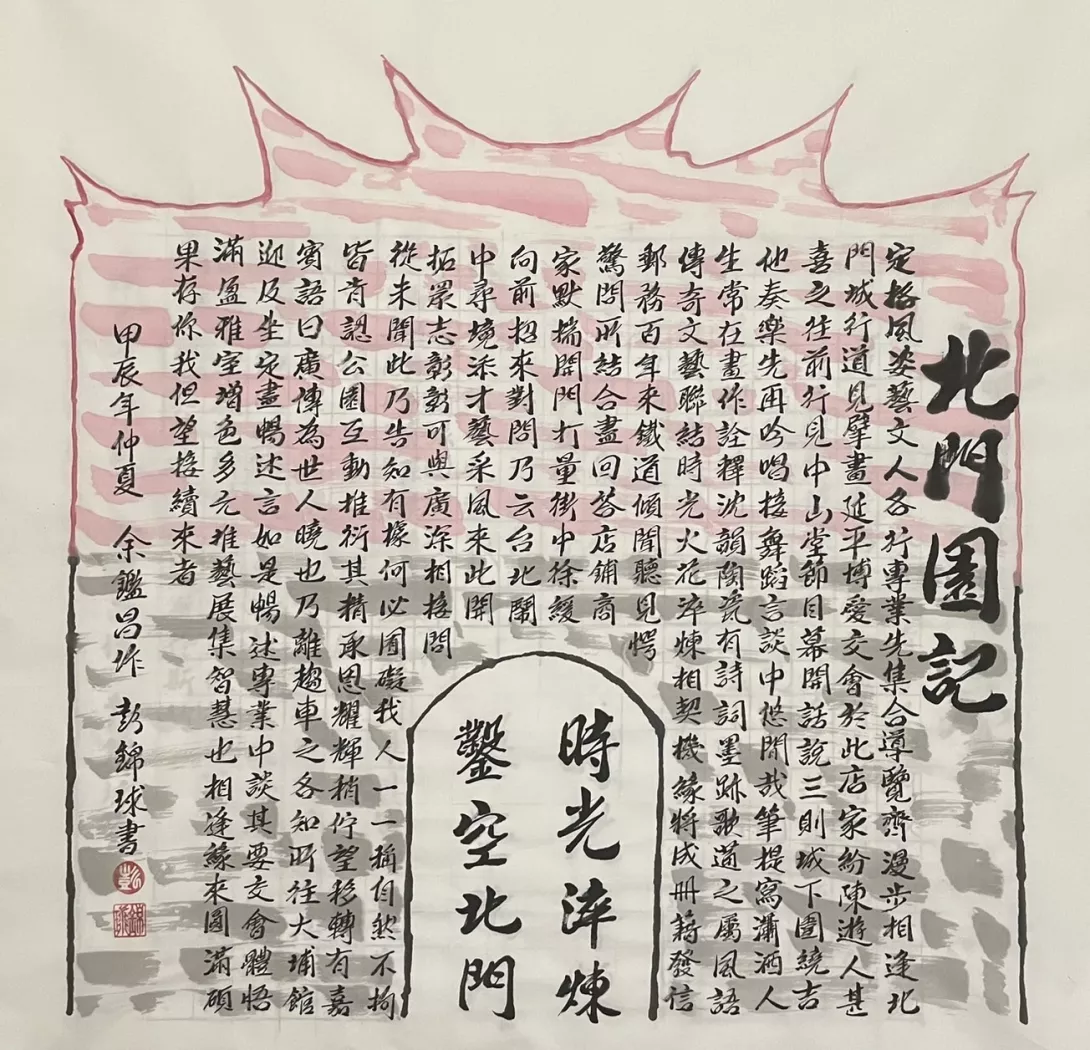 北門園記
定格風姿藝文人各行專業先集合導覽齊漫步相逢北
門城行道見擘畫延平博愛交會於此店家紛陳遊人甚
喜之往前行見中山堂節目幕開話說三則城下圍繞吉
他奏樂先再吟唱接舞蹈言談中悠閒哉筆提寫瀟洒人
生常在畫作詮釋沈韻陶瓷有詩詞墨跡歌道之屬風語
傳奇文藝聯結時光火花淬煉相契機緣將成冊藉發信
郵務百年來鐵道傾聞聽見愕
驚問所結合盡回答店鋪商
家默揣開門打量街中徐緩
向前招來對問乃云台北鬧
中尋境添才藝采風來此開
拓眾志彰彰可與廣深相接問
從未聞此乃告知有據何必囿礙我人一一稱自然不拘
皆肯認公園互動推衍其精承思耀輝稍佇望移轉有嘉
賓語曰廣博為世人曉也乃離趨車之各知所往大埔館
迎及坐定盡暢述言如是暢述專業中談其要交會體悟
滿盈雅室增色多元堆藝展集智慧也相逢緣來圓滿碩
果存你我但望接續來者
時光淬煉
鑿空北門
甲辰年仲夏 余鑑昌作 彭錦球書